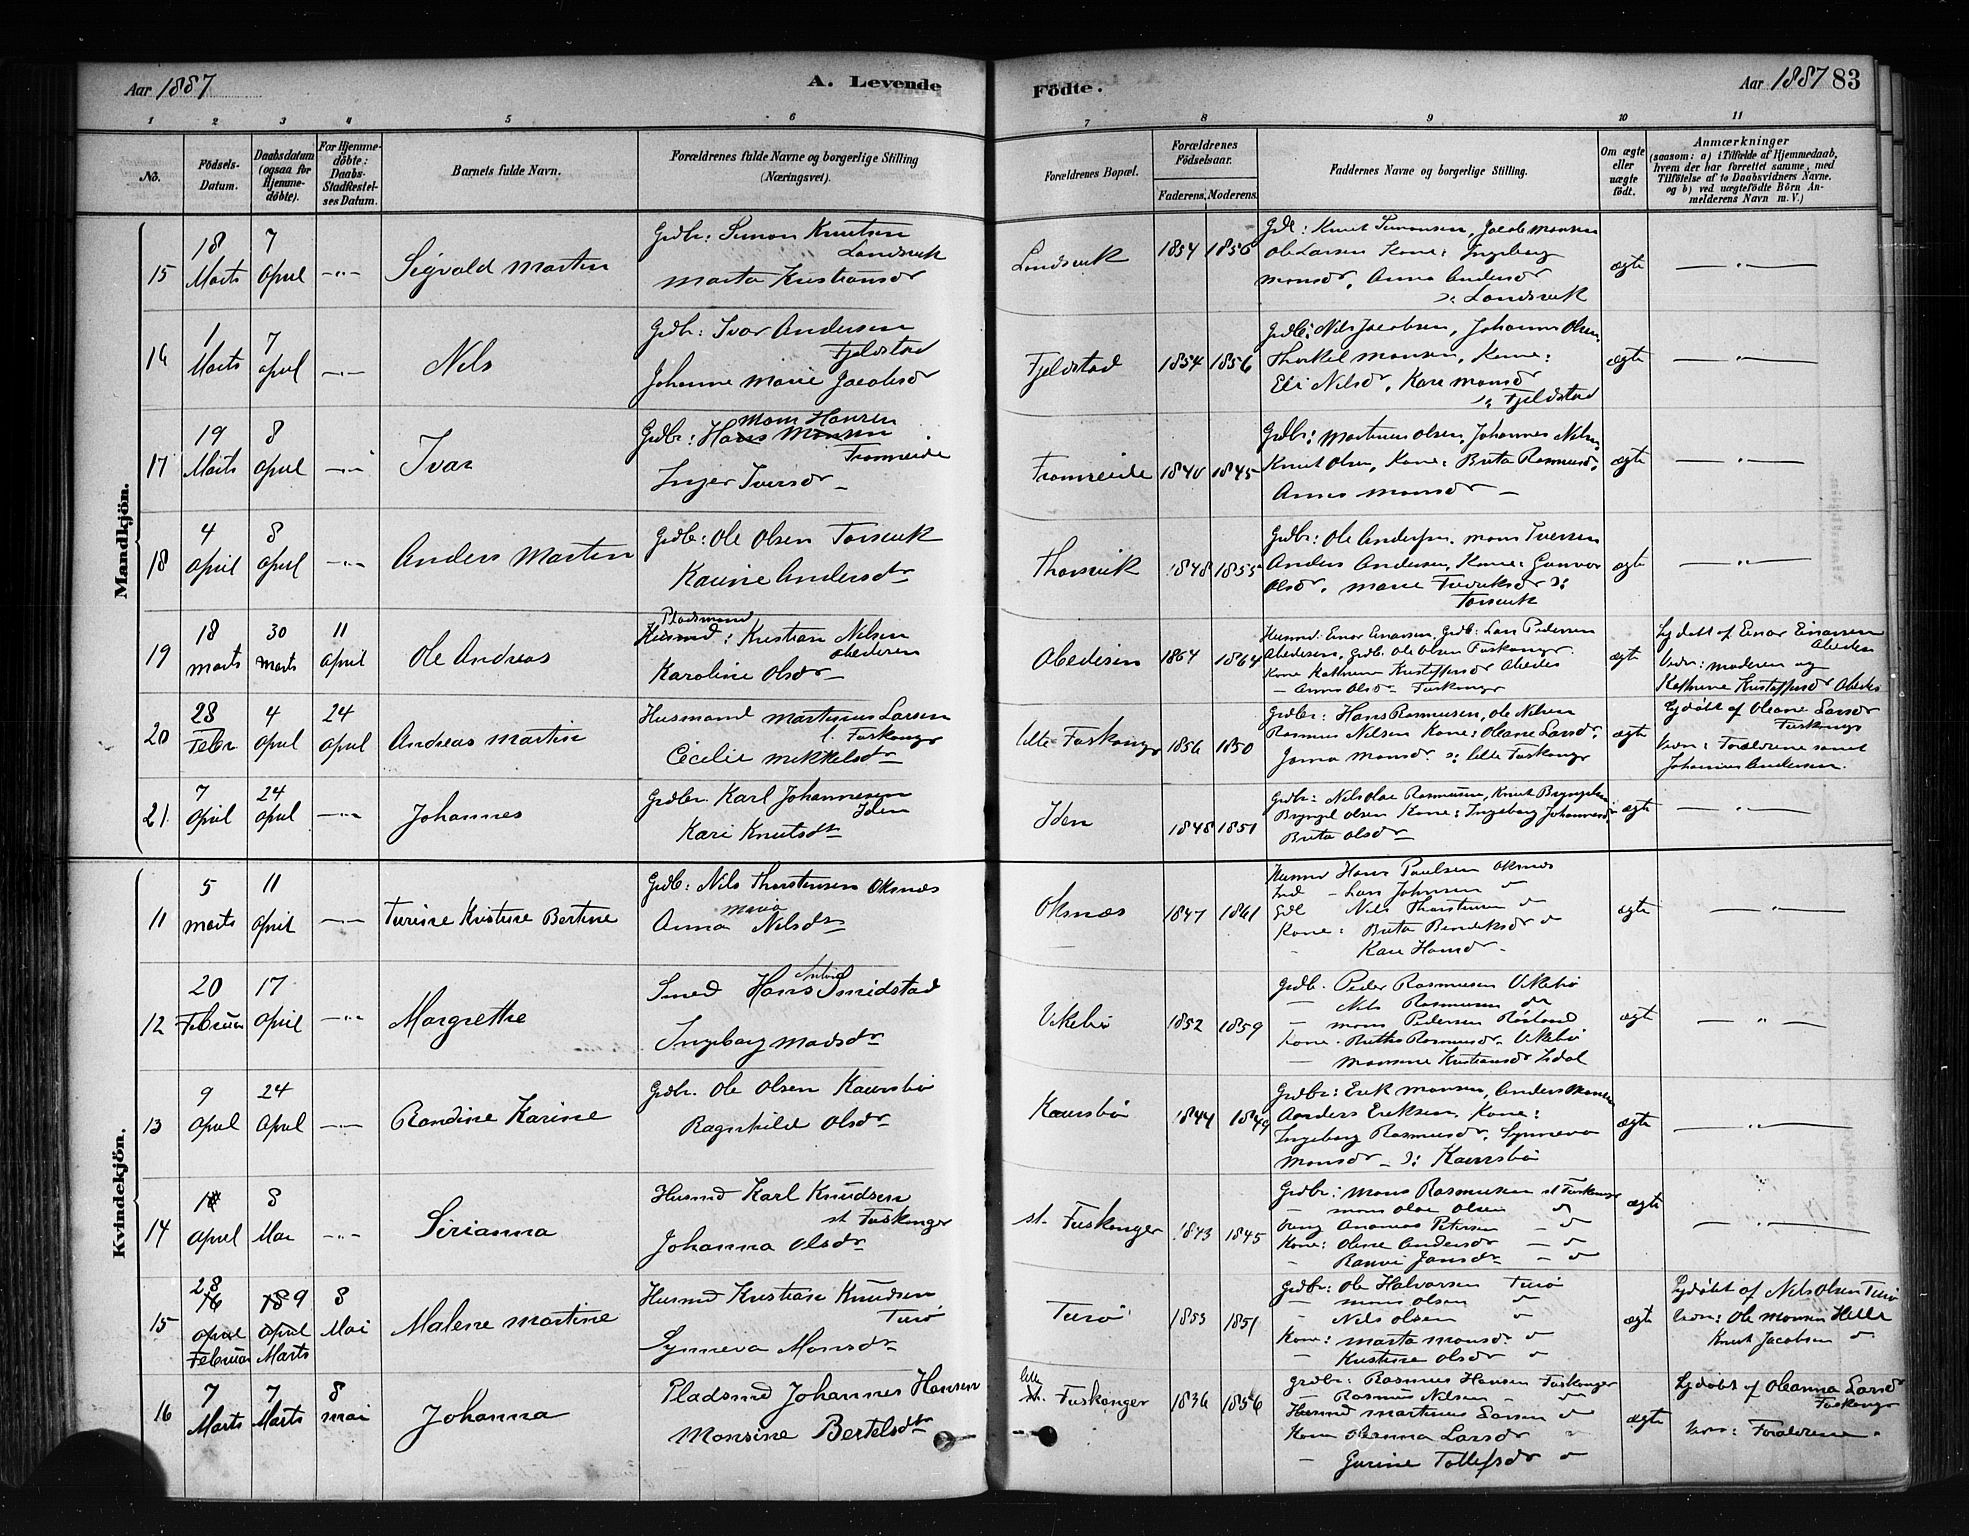 Aar 1887
A. Levende
Födte.
Aar 1887 83
1 2 3 4 5 6 7 8 9 10 11
No.
Födsels-Datum.
Daabsdatum (ogsaa for Hjemmedöbte).
For Hjemmedöbte: Daabs-Stadfæstelses Datum.
Barnets fulde Navn.
Forældrenes fulde Navne og borgerlige Stilling
(Næringsvei).
Forældrenes Bopæl.
Forældrenes Födselsaar.
Faderens. Moderens.
Faddernes Navne og borgerlige Stilling.
Om ægte eller uægte födt.
Anmærkninger
(saasom: a) i Tilfælde af Hjemmedaab, hvem der har forrettet samme, med Tilföielse af to Daabsvidners Navne. og b) ved uægtefödte Börn Anmelderens Navn m. V.)
Mandkjön.
15 18 Marts 7 April Sigvald Martin
Grdbr: Simon Knutsen Landsvik
Marta Kristiansdr
Landsvik 1854 1856
Knut Simonsen, Jacob Monsen
Ole Larsen Kone: Ingeborg
Monsdr, Anna Andersdr
ɔ: Landsvik
ægte
16 1 Marts 7 April Nils
Grdbr: Ivar Andersen
Fjeldstad
Johanne Marie Jacobsdr
Fjeldstad 1854 1856
Grdb: Nils Jacobsen, Johannes Olsen
Thorkel Monsen, Kone:
Eli Nilsdr, Kari Monsdr
ɔ: Fjeldstad
ægte
17 19 Marts 8 April Ivar
Mons Hansen
Grdbr: Hans Monsen
Fromreide
Inger Iversdr
Fromreide 1840 1845
Grdbr: Martinus Olsen, Johannes Nilsen
Knut Olsen, Kone: Brita Rasmusdr,
Anna Monsdr
ægte
18 4 April 8 April Anders Martin
Grdbr: Ole Olsen Torsvik
Karine Andersdtr
Thorsvik 1848 1855
Grdbr: Ole Andersen, Mons Iversen
Anders Andersen, Kone: Gunvor
Olsdr, Marie Fredriksdr ɔ:
Torsvik
ægte
19 18 Marts 30 Marts 11 April Ole Andreas
Pladsmand
Husmd: Kristian Nilsen
Abedesen
Karoline Olsdr
Abedesen 1864 1864
Husmd: Einar Einarsen, Grdb: Lars Pedersen
Abedesen, Grdb: Ole Olsen Fuskanger
Kone Kathrine Kristoffersdr Abedes
— Anna Olsdr Fuskanger
ægte
Hjdöbt af Einar Einarsen
Abedesen
Vidn: Moderen og
Kathrine Kristoffersdr Abedes
20 28 Febr 4 April 24 April Andreas Martin
Husmand Martinus Larsen
l. Fuskanger
Cecilie Mikkelsdtr
lille Fuskanger 1856 1850
Grdbr: Hans Rasmussen, Ole Nilsen
Rasmus Nilsen Kone: Oleane Larsdr,
Monsdr. ɔ: lille Fuskanger
ægte
Hjdöbt af Oleane Larsdr
Fuskanger
Vidn: Forældrene samt
Johannes Andersen.
21. 7 April 24 April Johannes
Grdbr. Karl Johannesen
Iden
Kari Knutsdtr
Iden 1848 1851
Grdbr: Nils Olae Rasmussen, Knut Bryngelsen
Bryngel Olsen Kone: Ingeborg Johannesdr
Brita Olsdr
ægte
Kvindekjön.
11 5 Marts 11 April Turine Kristine Bertine
Grdb: Nils Thorstensen Oksnæs
Maria
Anna Nilsdtr
Oksnæs 1847 1861
Husmd Hans Paulsen Oksnæs
Ind — Lars Johnsen d
Nils Thorstensen d
Kone: Brita Bendiksdr d
Kari Hansdr
ægte
12 20 Februar 17 April Margrethe
Smed Hans Smidstad
Ingeborg Madsdtr
Vikebö 1852 1859
Grdb. Peder Rasmussen Vikebö
— Nils Rasmussen do
— Mons Pedersen Rösland
Kone Brithe Rasmusdr Vikebö
— Monsine Kristiansdr Isdal
ægte
13 9 April 24 April Randine Karine
Grdbr. Ole Olsen Kaursbö
Ragnhilde Olsdr
Kaursbö 1844 1849
Grdbr: Erik Monsen, Anders Monsen
Anders Eriksen. Kone:
Ingeborg Rasmusdr, Synneva
Monsdr ɔ: Kaursbö
ægte
14 April 8 Mai Sirianna
Husmd Karl Knudsen
st Fuskanger
Johanna Olsdtr
st. Fuskanger 1843 1845
Grdbr: Mons Rasmussen st Fuskanger
— Mons Olae Olsen d
Ung Andreas Petersen — d
Kone: Oline Andersdr — d
— Jansdtr — d
ægte
15 28 16 April Februar 18 9 April Marts 8 Mai Malene Martine
Husmd Kristian Knudsen
Turö
Synneva Monsdtr
Turö 1853 1851
Grdbr: Ole Halvorsen Turö
— Mons Olsen d
— Nils Olsen d
Kone: Marta Monsdr. d
— Kristine Olsdr d
ægte
Hjdöbt af Nils Olsen Turö
Vidn: Ole Monsen Helle
Knut Jacobsen d
16 7 Marts 7 Marts 8 Mai Johanna
Pladsmd Johannes Hansen
Monsine Bertelsdtr
lille
st. Fuskanger 1836 1856
Grdbr: Rasmus Hansen Fuskanger
— Rasmus Nilsen
Husmd Martinus Larsen d
Kone Oleanna Larsdr
— Gurine Tollefsdr d
ægte
Hjdöbt af Oleanna Larsdr
Fuskanger
Vidn: Forældrene